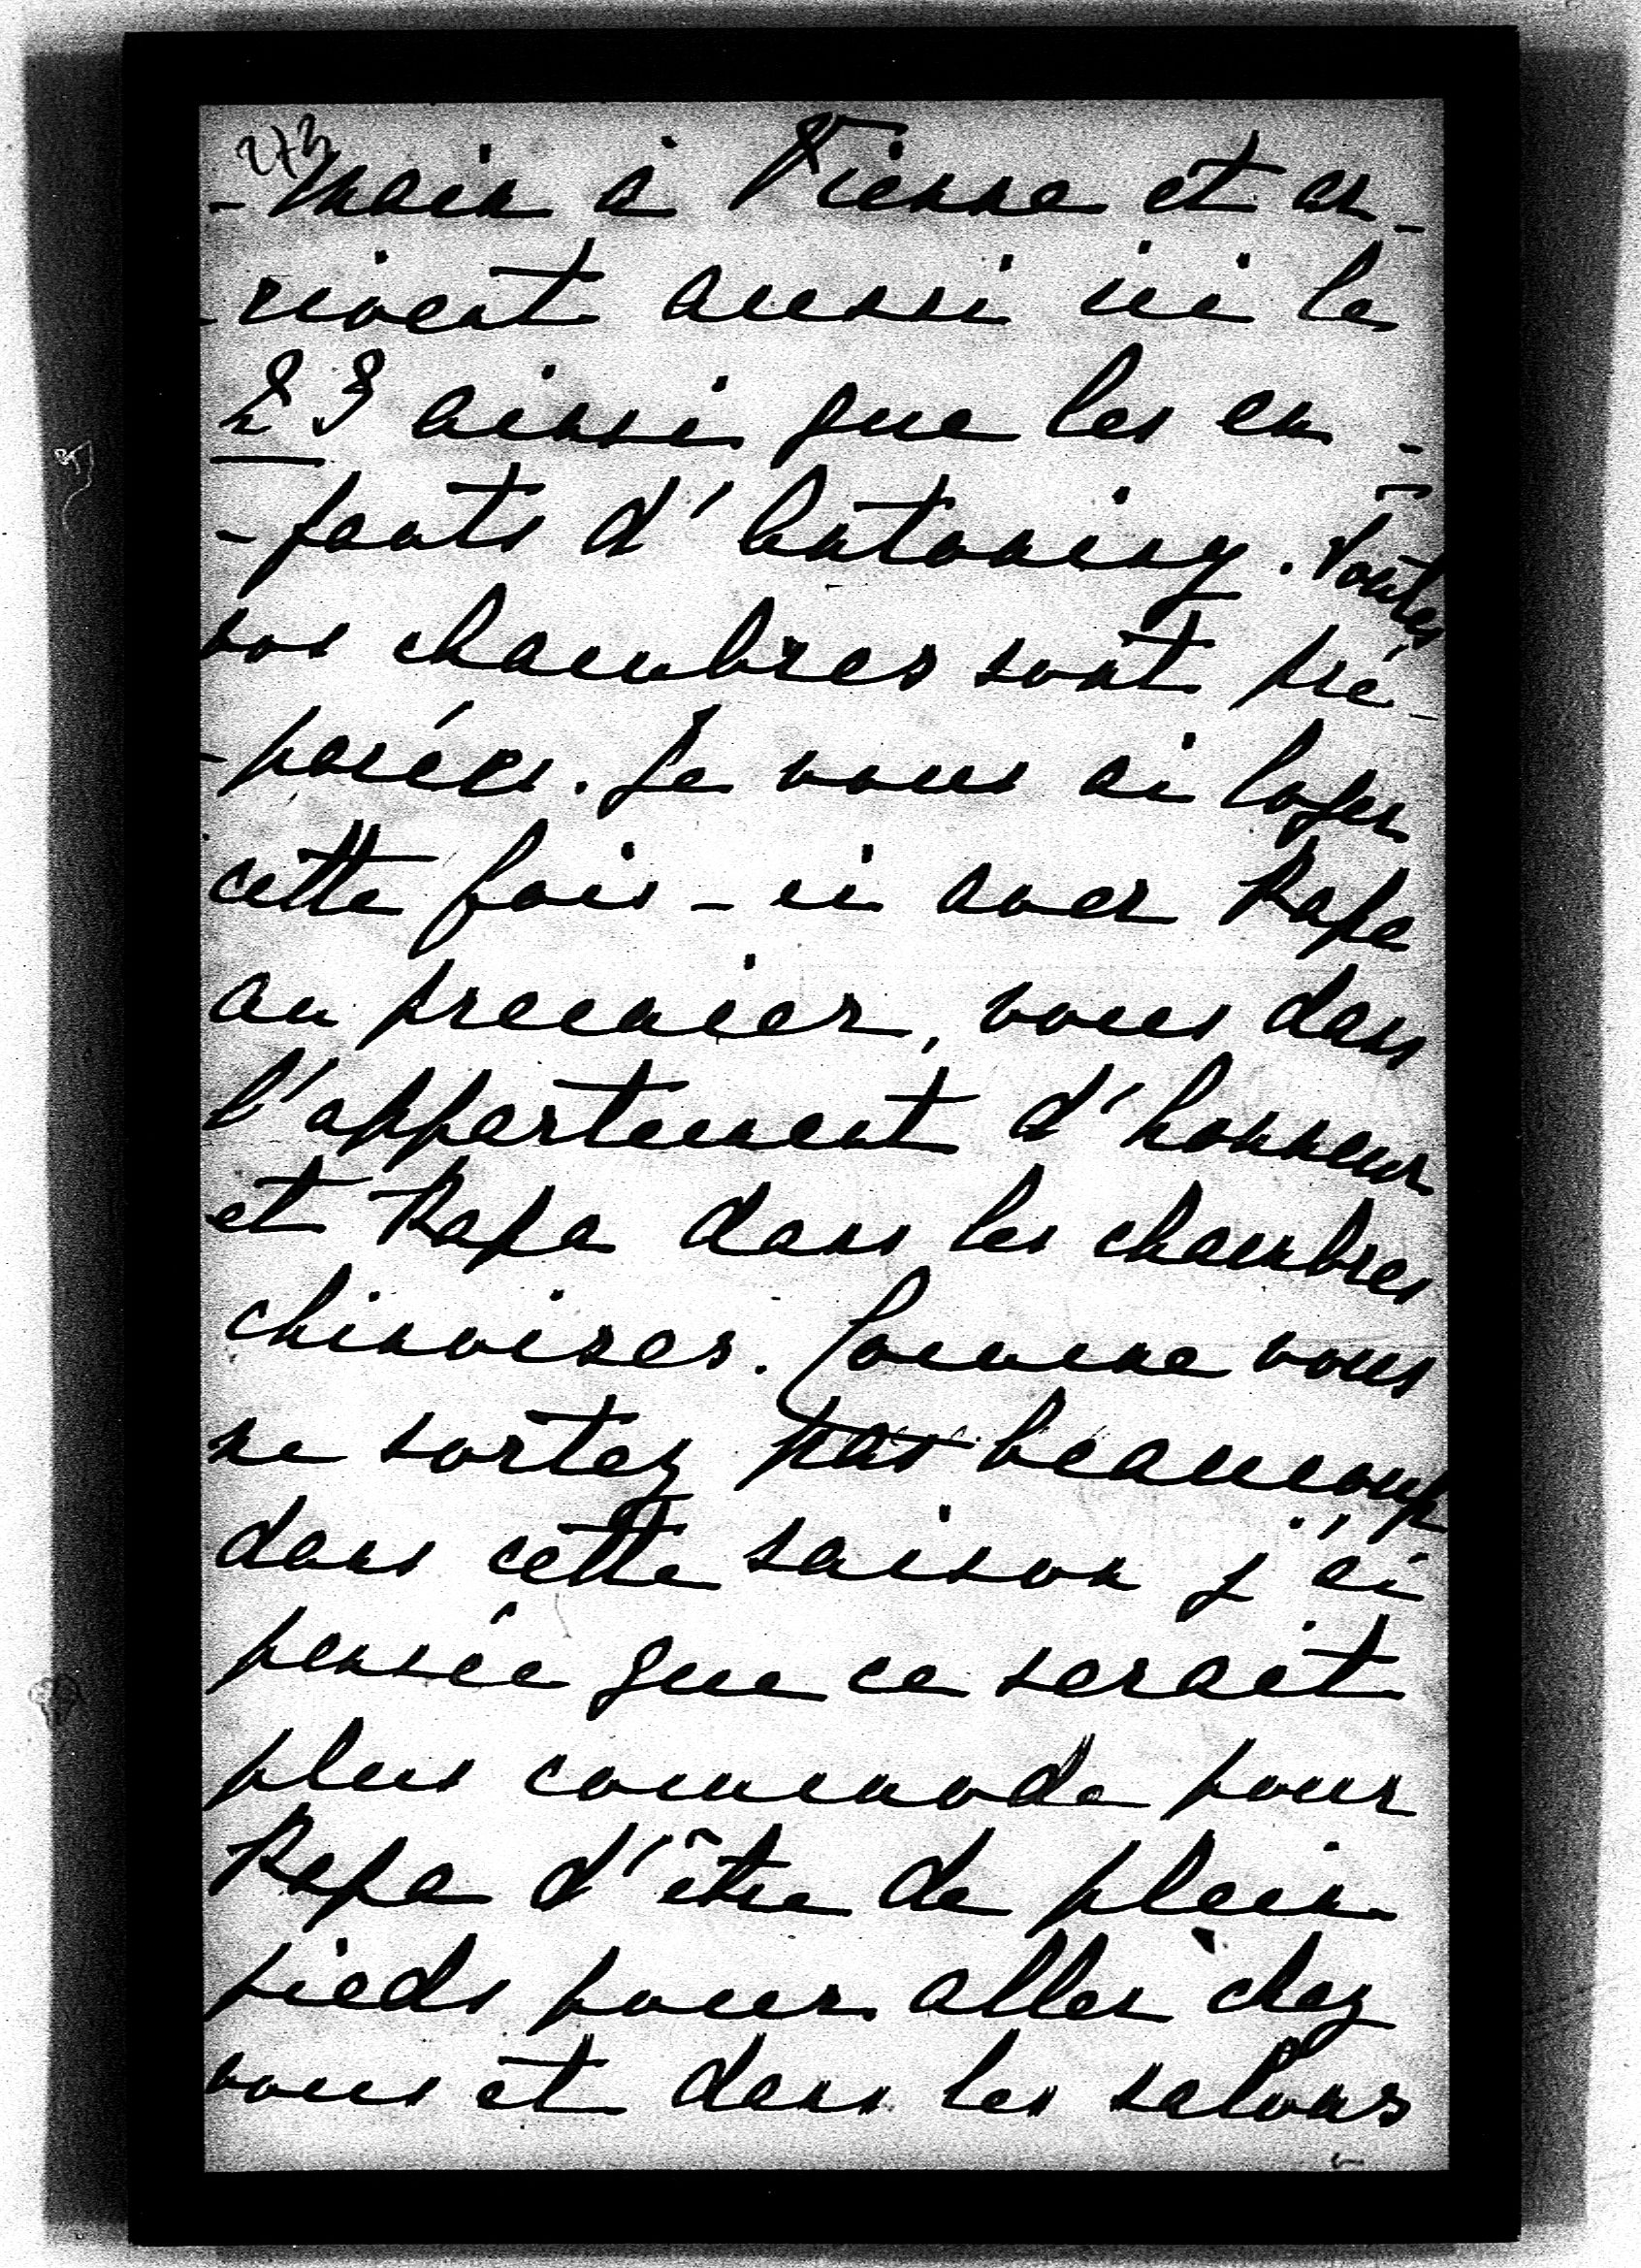 273
-main à Vienne et ar-
-rivent aussi ici le
23 ainsi que les en-
-fants d'Antoniny. Toutes
vos chambres sont pré-
-parées. Je vous ai loger
cette fois-ci avec Papa
au premier, vous dans
l'appartement d'honneur
et Papa dans les chambres
chinoises. Comme vous
ne sortez pas beaucoup
dans cette saison j'ai
pensée que ce serait
plus commode pour
Papa d'être de plein
pieds pour aller chez
vous et dans les salons